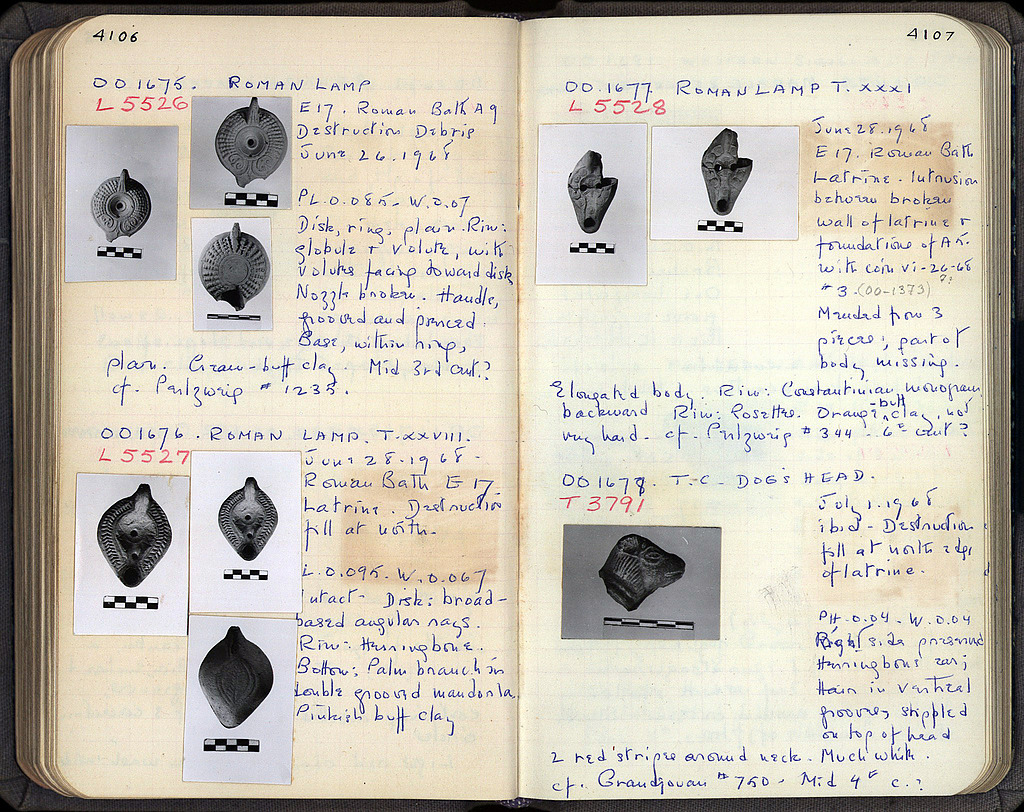 4106
OO 1675. ROMAN LAMP
L 5526
E 17. Roman Bath A 9
Destruction Debris
June 26. 1968
PL. 0.085 - W. 0.07
Disk, ring, plain. Rim:
globule + volute, with
volutes facing toward disk
Nozzle broken. Handle,
grooved and pierced.
Base, within ring,
plain. Cream-buff clay. Mid 3rd cent.?
cf. Perlzweig # 1235.
OO 1676. ROMAN LAMP. T. XXVIII.
L 5527
June 28. 1968 -
Roman Bath E 17
Latrine. Destruction
fill at north.
L. 0.095. W. 0.067
Intact. Disk: broad-
based angular rays.
Rim: Herringbone.
Bottom: Palm branch in
double grooved mandorla.
Pinkish buff clay
4107
OO. 1677 ROMAN LAMP T. XXXI
L 5528
June 28. 1968
E 17. Roman Bath
Latrine. Intrusion
between broken
wall of latrine +
foundations of A 5.
with coin VI-26-68
# 3. (OO-1373) ?:
Mended from 3
pieces; part of
body missing.
Elongated body. Rim: Constantinian monogram
backward Rim: Rosettes. Orange-buff clay, not
very hard. cf. Perlzweig # 344 - 6th cent?
OO 1678. T.C. DOG'S HEAD.
T 3791
July 1. 1968
ibid - Destruction
fill at north edge
of latrine.
PH. 0.04 - W. 0.04
Right side preserved
Herringbone ear;
Hair in vertical
grooves, stippled
on top of head
2 red stripes around neck. Much white.
cf. Grandjouan # 750 - Mid 4th c.?